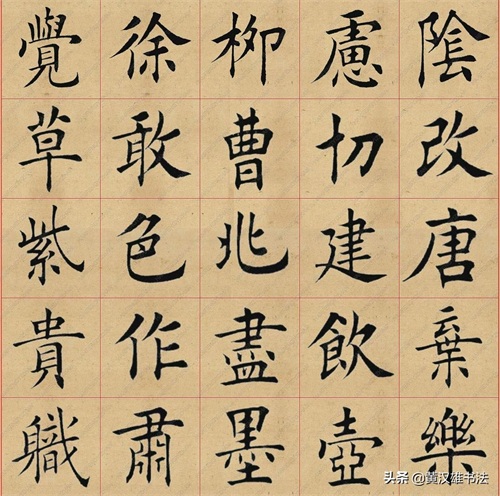 覺徐柳慮陰
草敢曹切改
紫色兆建唐
貴作盡飲棄
軄肅墨壺樂
头条 @黄汉雄书法